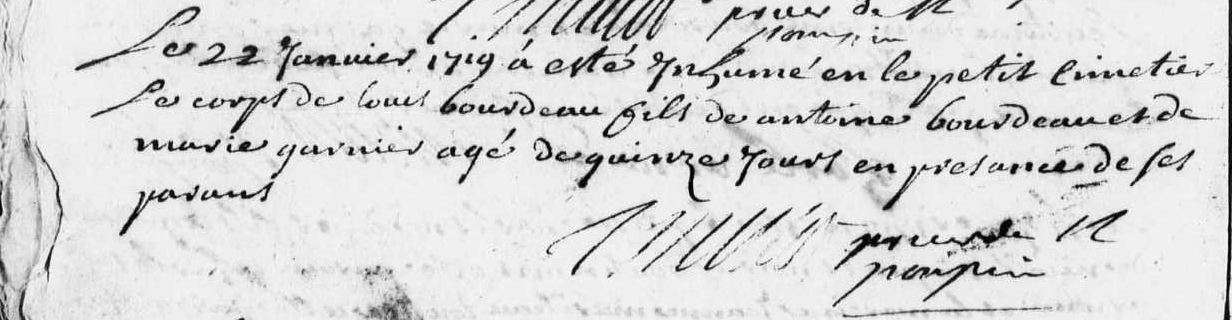 prieur de St
pompin
Le 22 Janvier 1719 á esté Jnhumé en le petit Cimetier
Le corps de louis bourdeau fils de antoine bourdeau et de
marie garnier agé de quinze Jours en presance de ses
parans
prieur de St
pompin